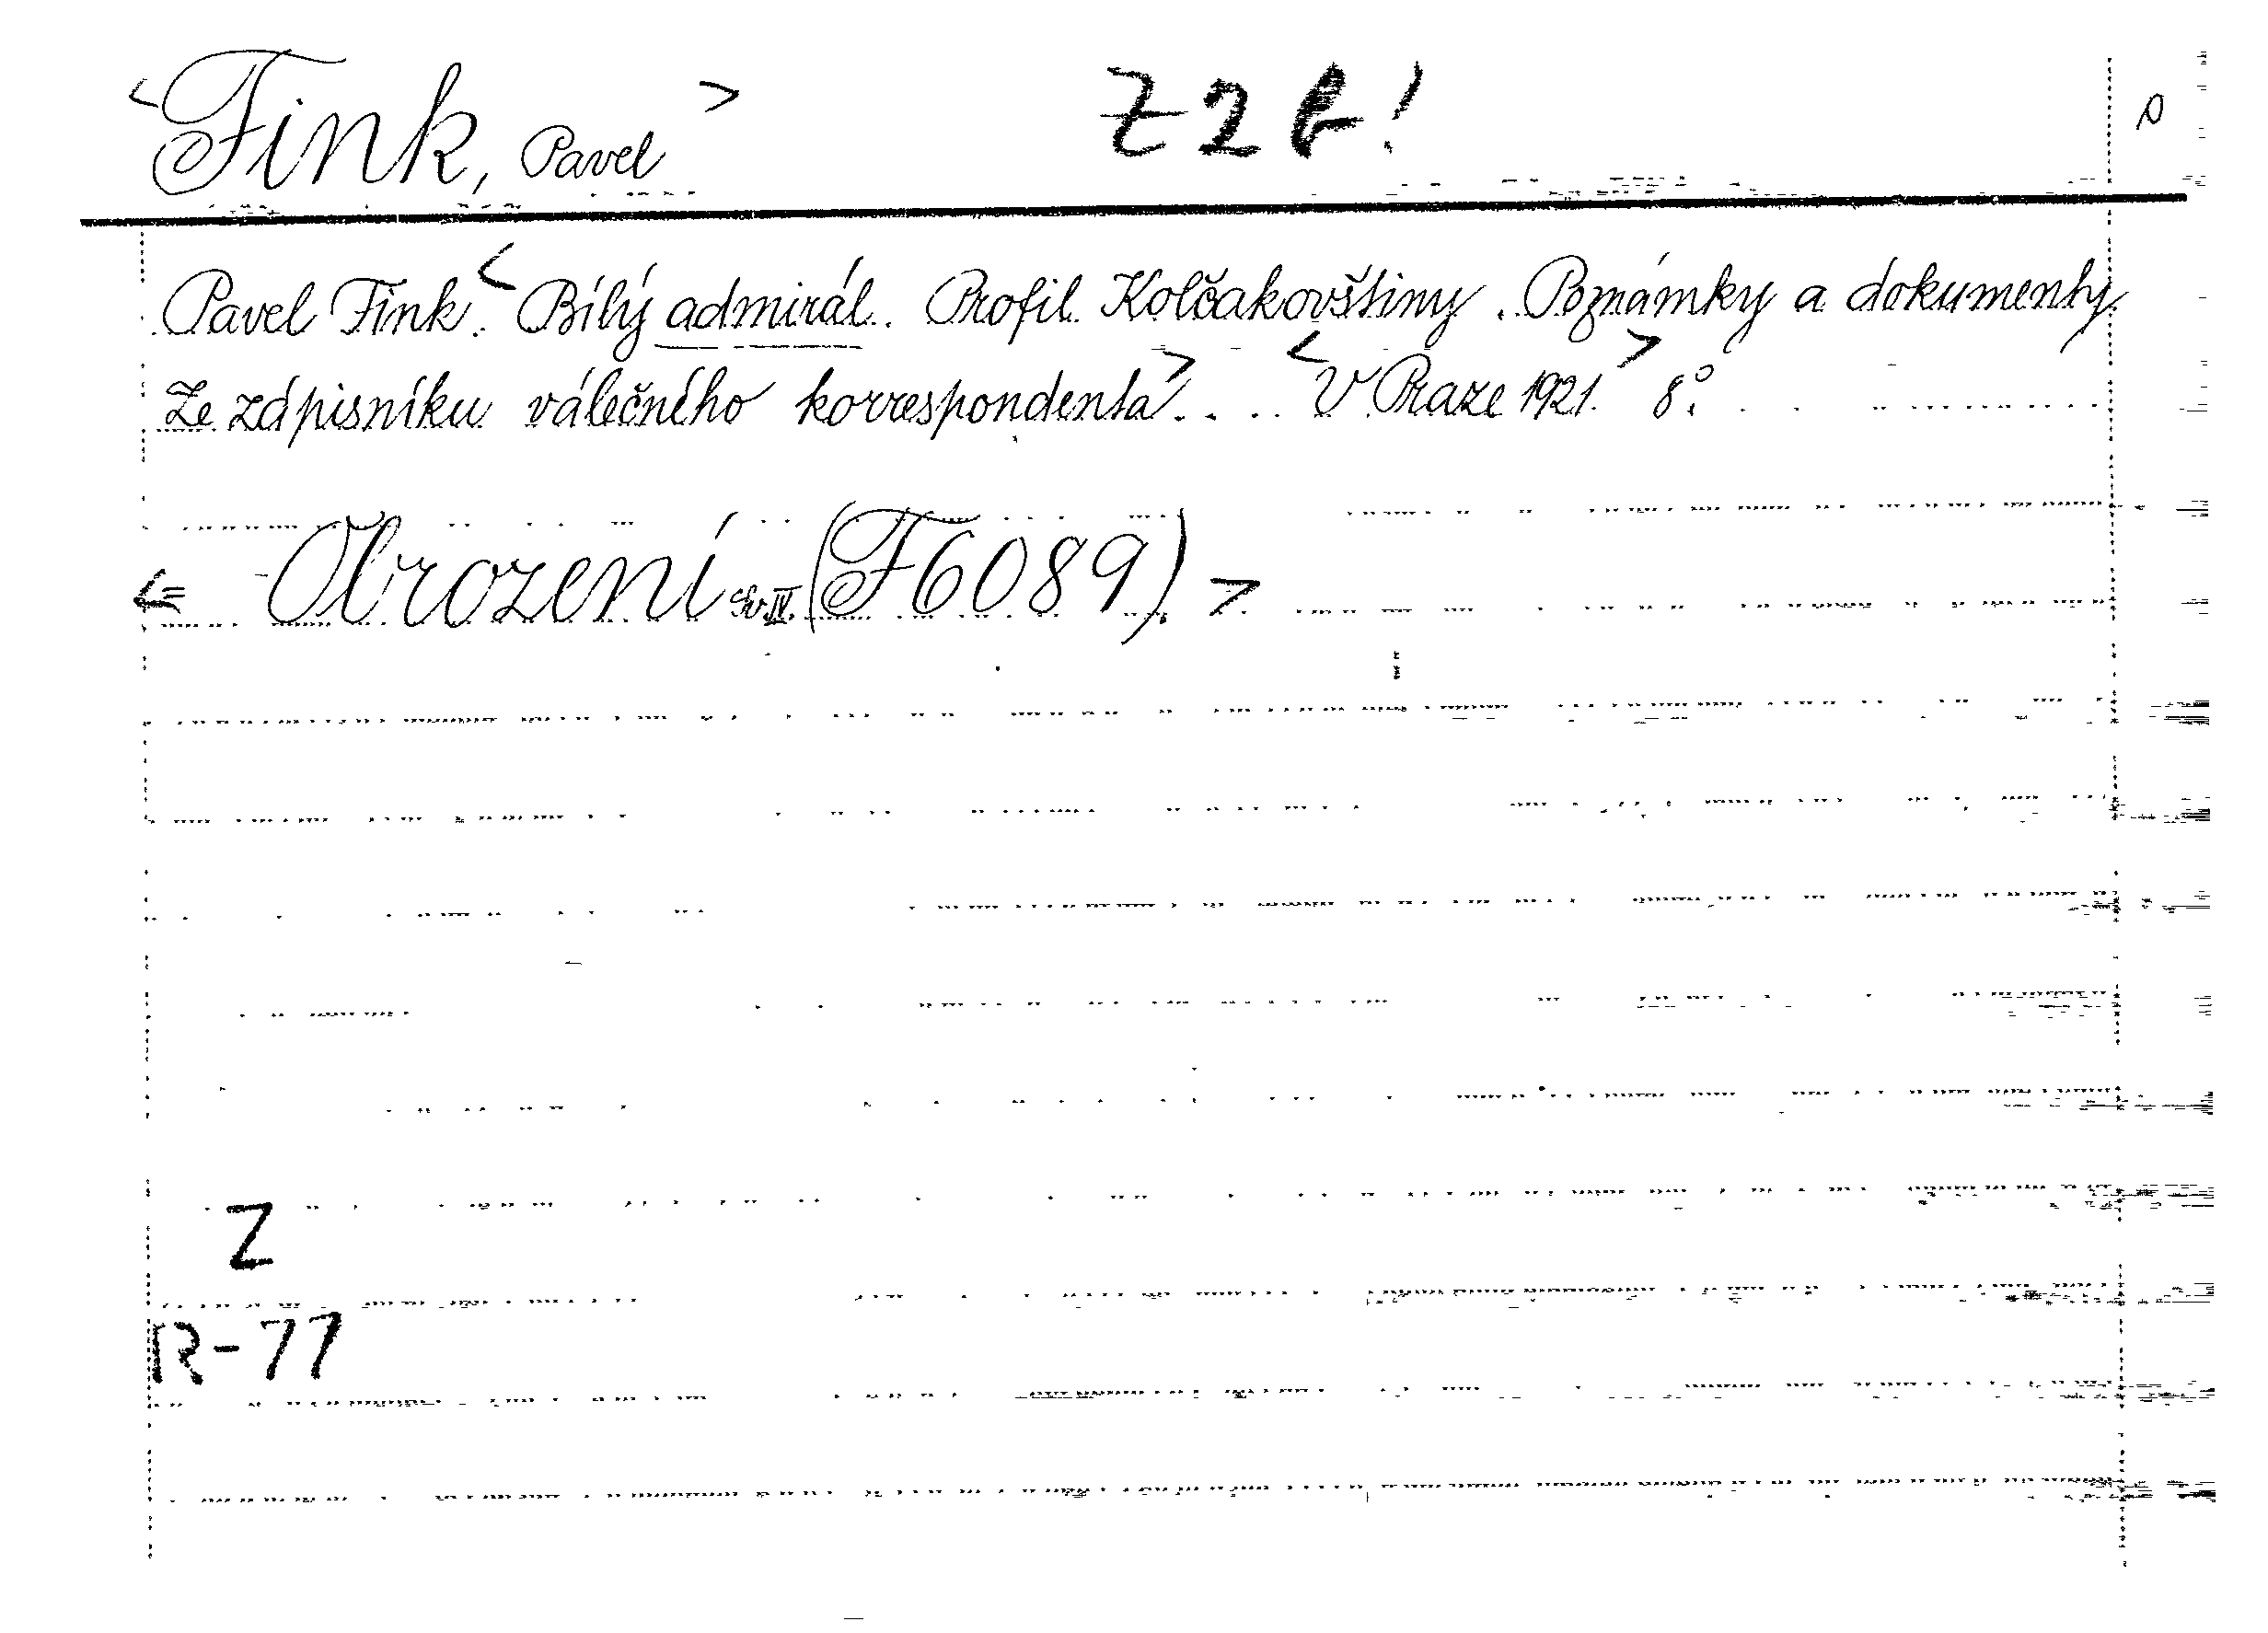 <Fink, Pavel> Z 2 b!
Pavel Fink. <Bílý admirál. Profil Kolčakovštiny. Poznámky a dokumenty
ze zápisníku válečného korrespondenta>. . . . <V Praze 1921.> 8°.
<= Obrození Sv. IV. (F6089).>
Z
R-77